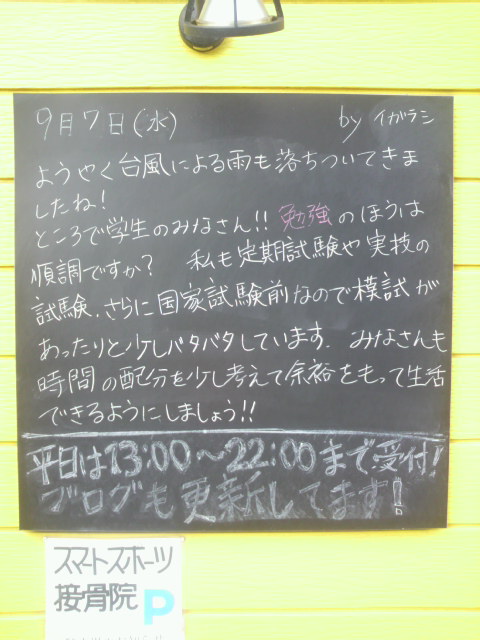 9月7日(水) by イガラシ
ようやく台風による雨も落ちついてきま
したね!
ところで学生のみなさん!! 勉強のほうは
順調ですか? 私も定期試験や実技の
試験、さらに国家試験前なので模試が
あったりと少しバタバタしています. みなさんも
時間の配分を少し考えて余裕をもって生活
できるようにしましょう!!
平日は13:00～22:00まで受付!
ブログも更新してます!
スマートスポーツ
接骨院 P